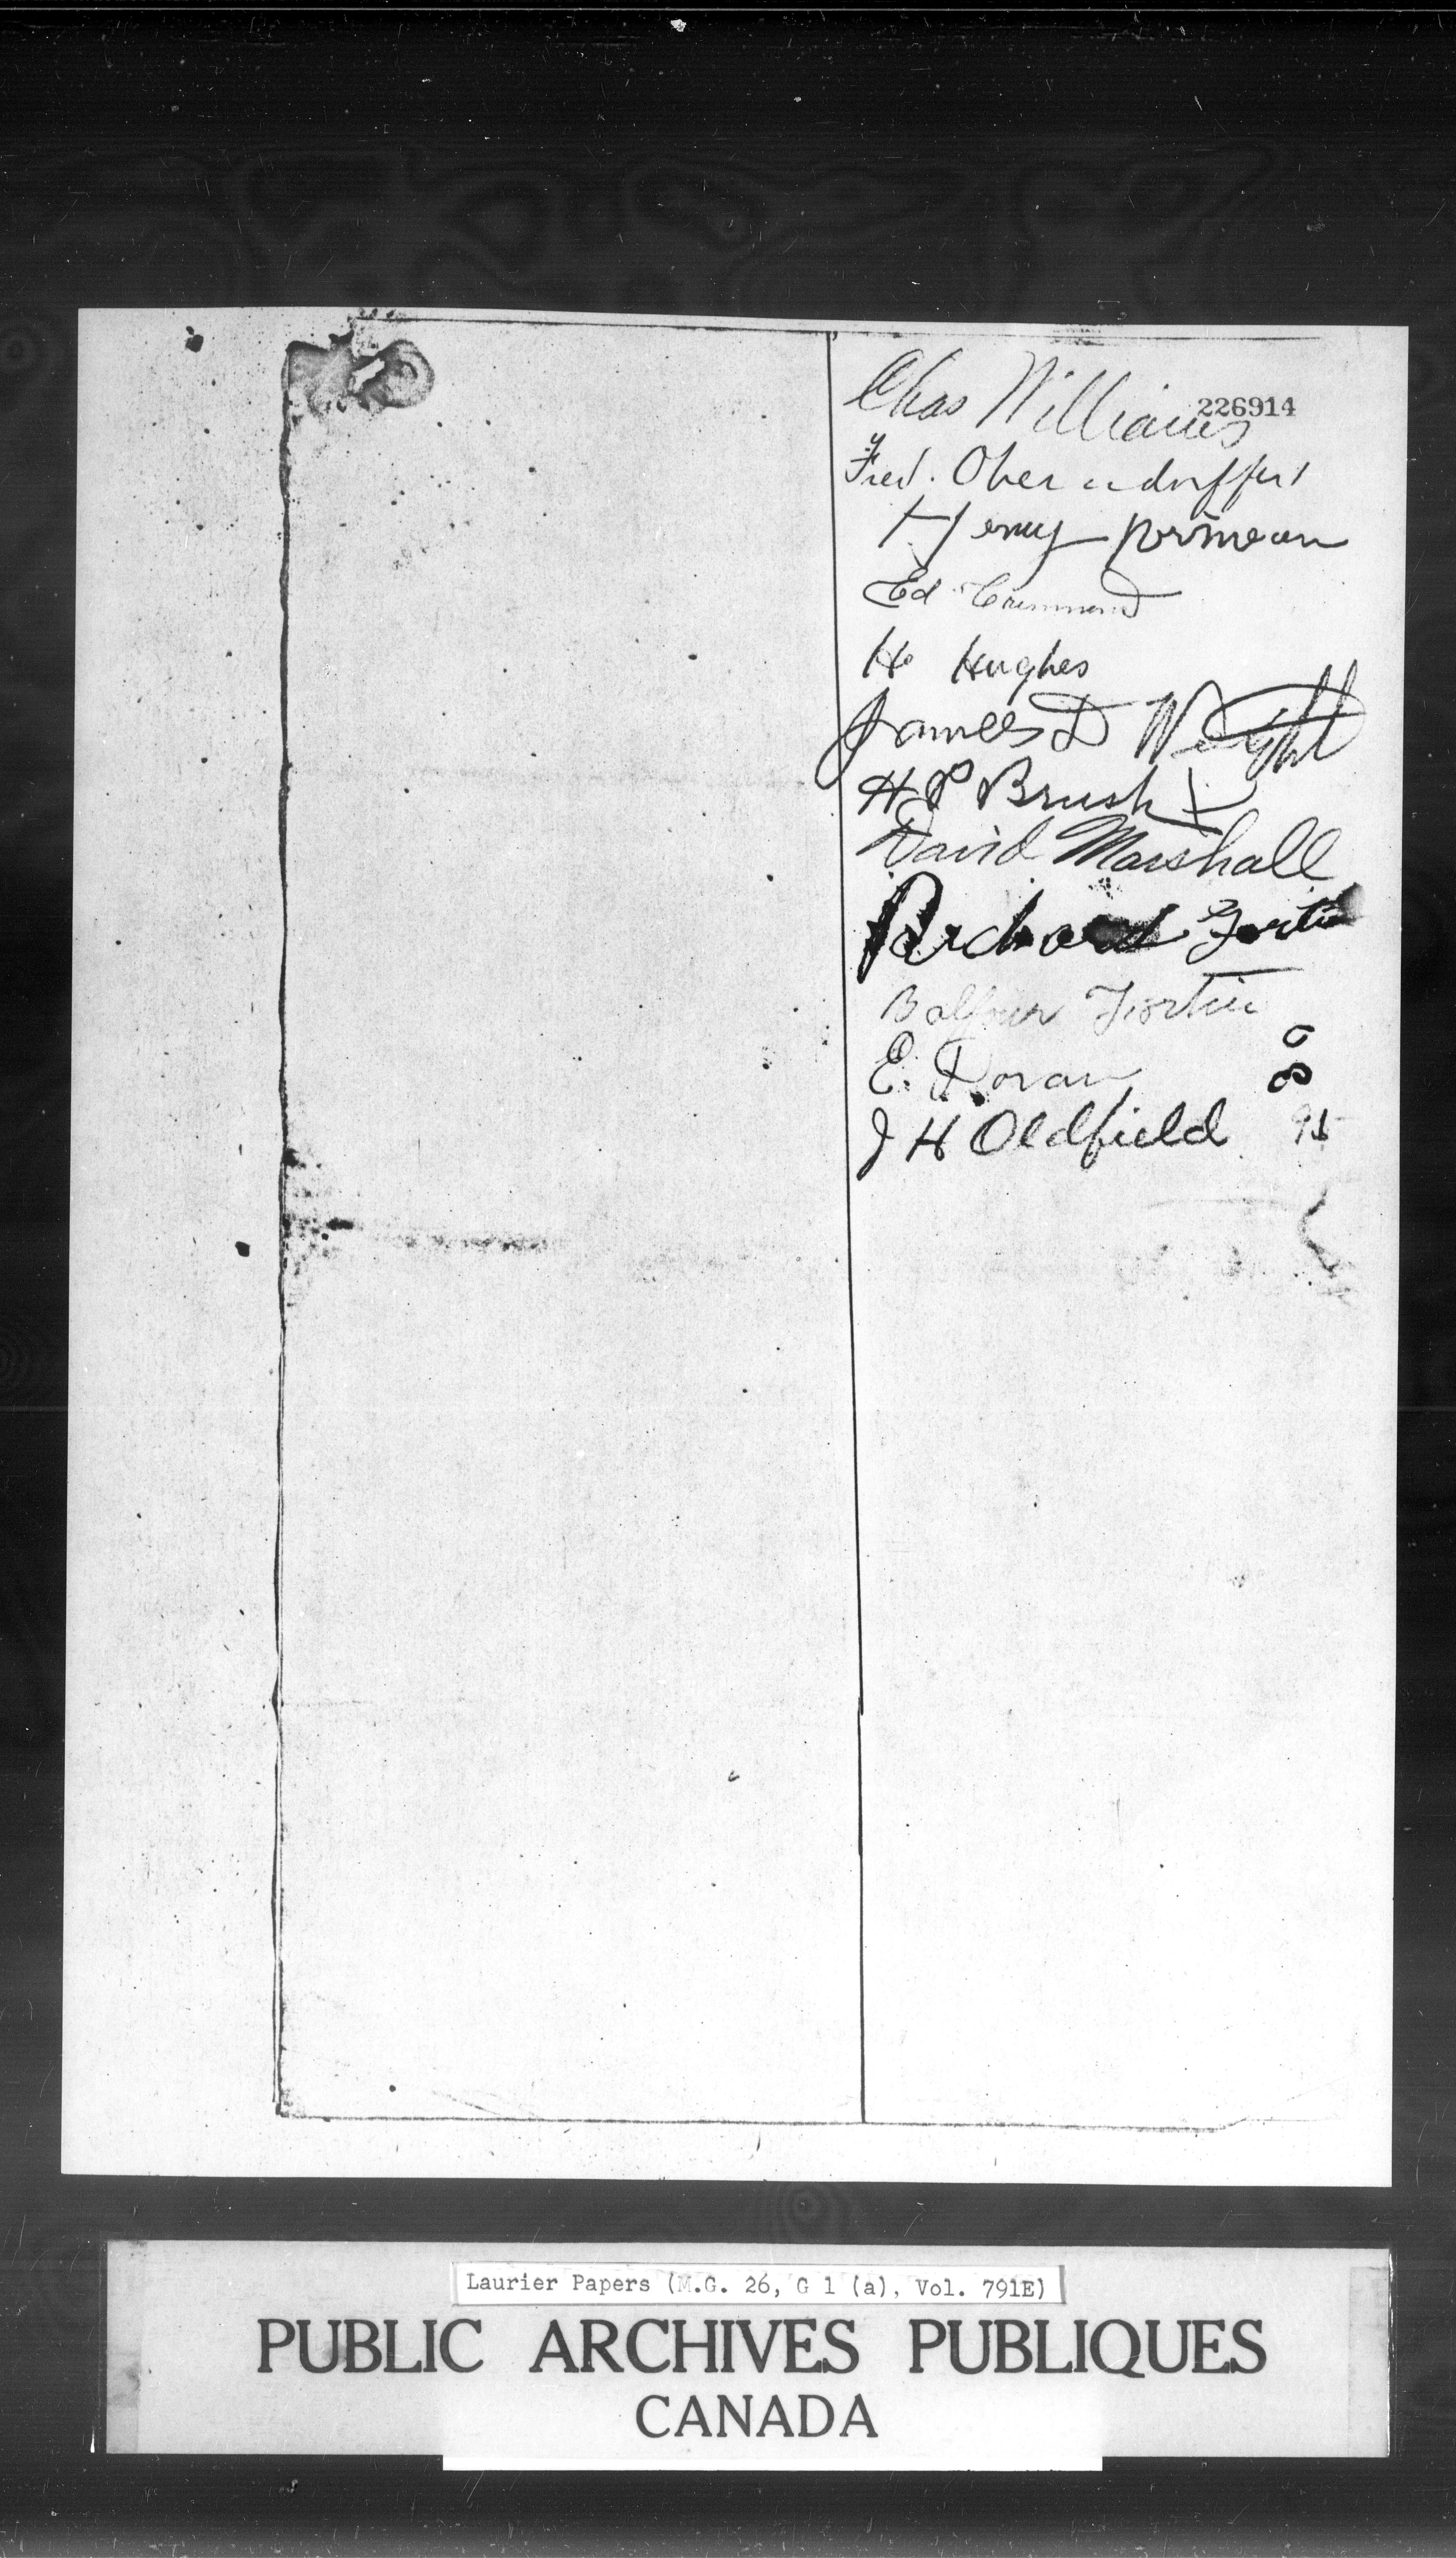 Chas Williams
226914
Fred. Oberndorffer
Henry
Ed
H Hughes
James D Wright
H P Brush
David Marshall
Richard Fortier
Balfour Fortier
E. Doran
8
J H Oldfield 95
Laurier Papers (M.G. 26, G 1 (a), Vol. 791E)
PUBLIC ARCHIVES PUBLIQUES
CANADA